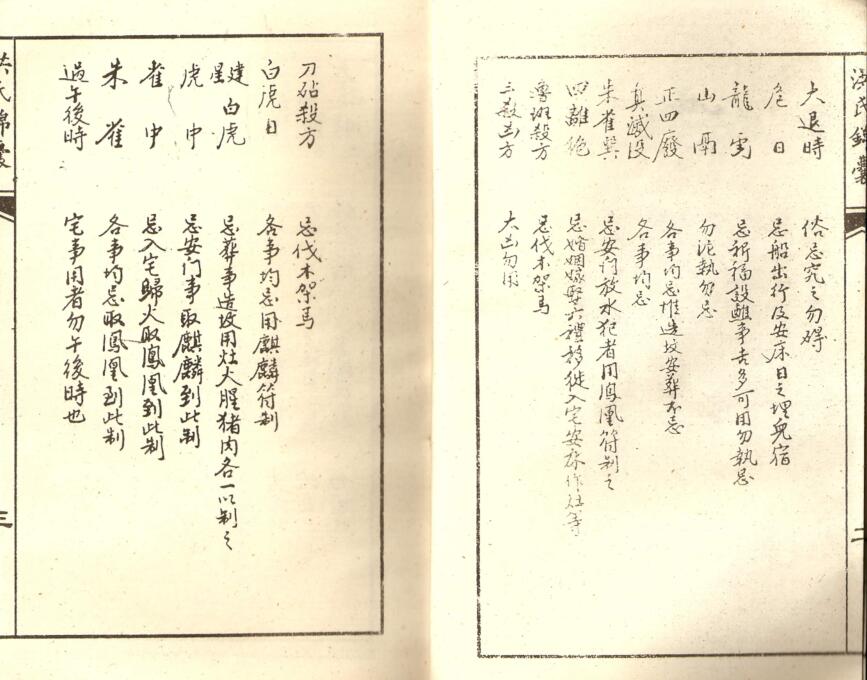 洪氏錦囊
二
大退時 俗忌究之勿碍
危日 忌船出行及安床日之埋兒宿
龍虎 忌祈福設醮事吉多可用勿執忌
山鬲 勿泥執勿忌
正四廢 各事均忌惟造坟安葬不忌
真滅没 各事均忌
朱雀巽 忌安门放水犯者用鳳凰符制之
四離絶 忌婚姻嫁娶六禮移徙入宅安床作灶等
魯班殺方 忌伐木架馬
三殺方 大凶勿用
刀砧殺方 忌伐木架馬
白虎日 各事均忌用麒麟符制
建星白虎 忌葬事造坟用灶火腥猪肉各一以制之
虎中 忌安门事取麒麟到此制
雀中 忌入宅歸火取鳳凰到此制
朱雀 各事均忌取鳳凰到此制
過午後時 宅事用者勿午後時也
洪氏錦囊
三